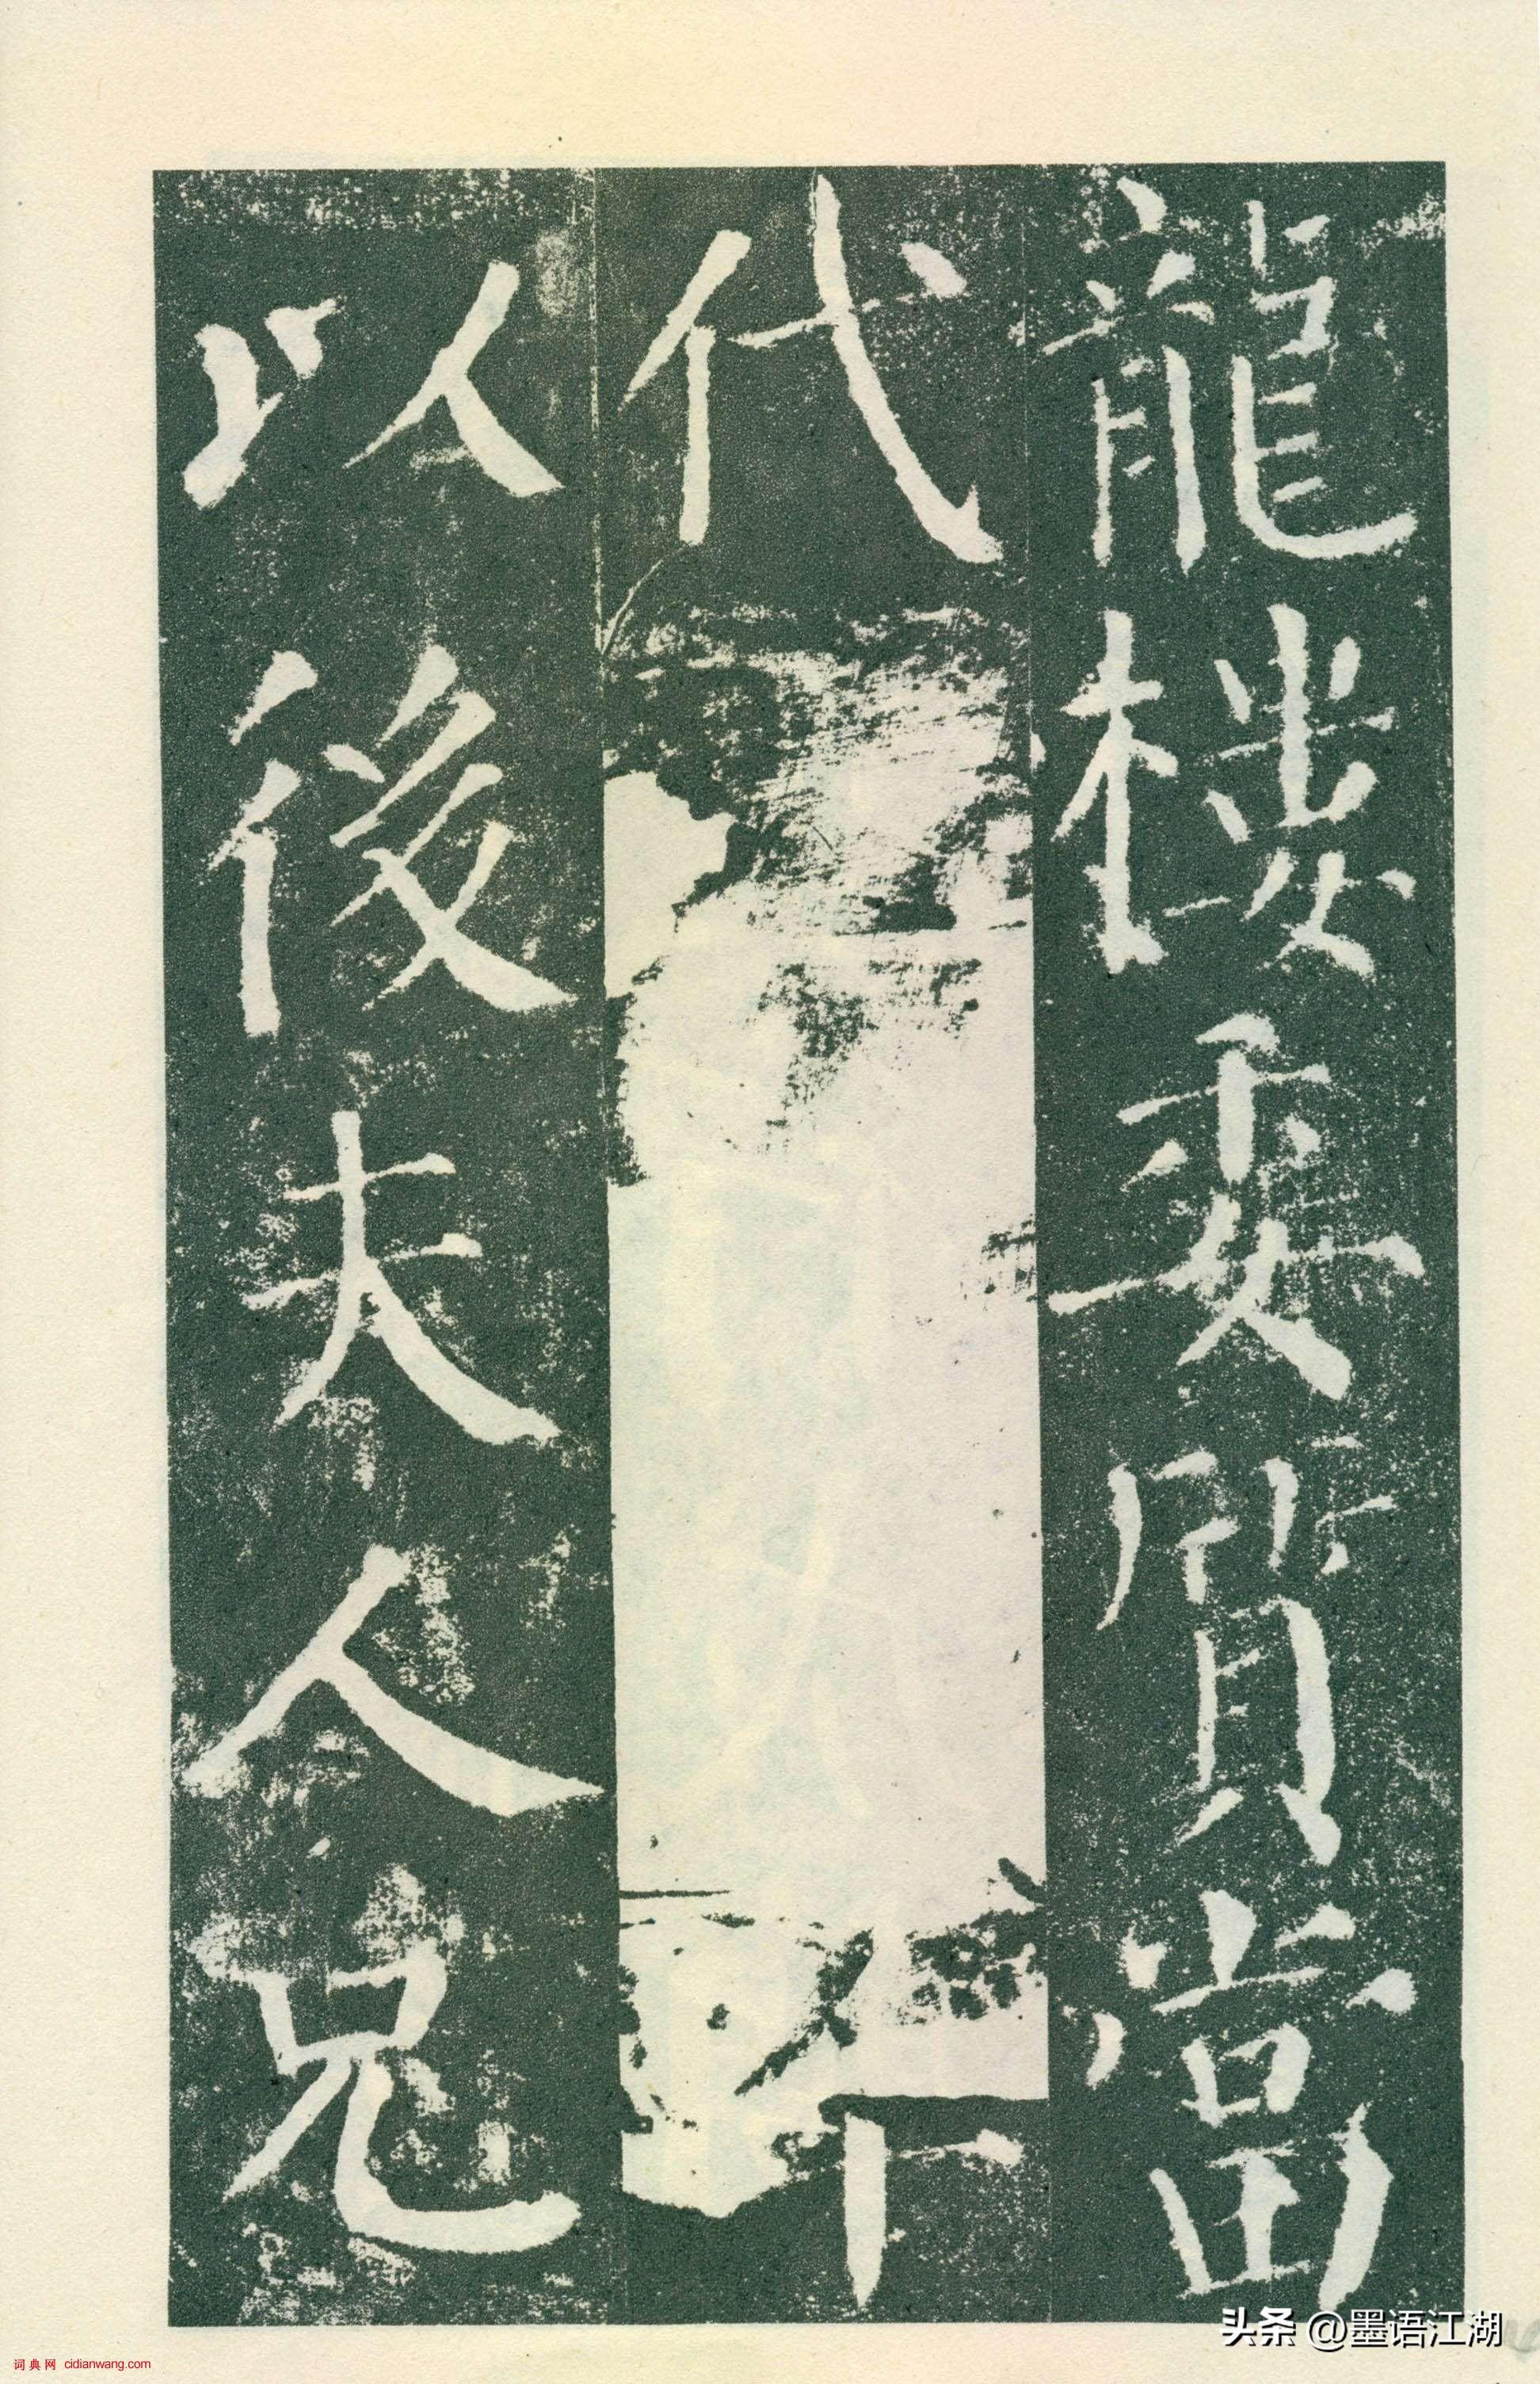 龍樓委質當
代
以後夫人兄
头条 @墨语江湖
词典网 cidianwang.com